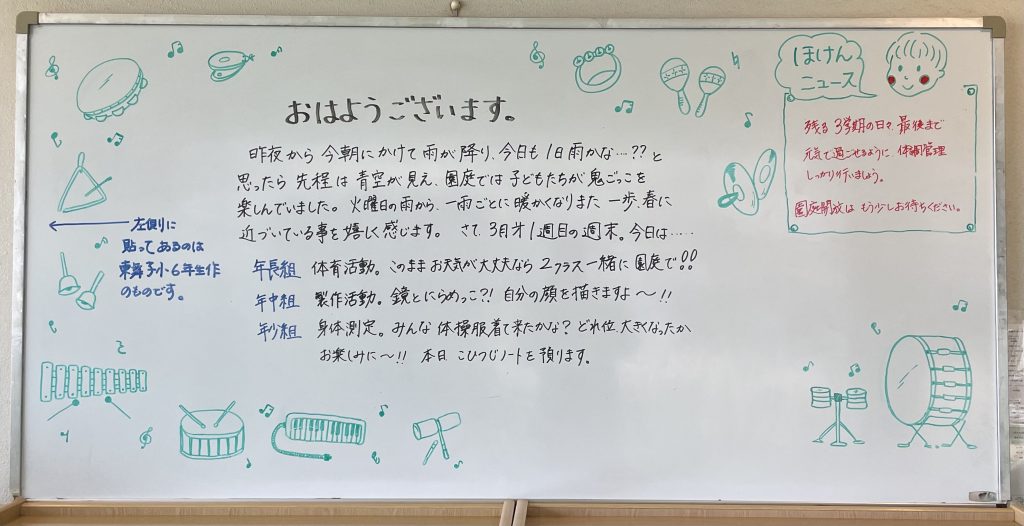 おはようございます。
昨夜から今朝にかけて雨が降り、今日も1日雨かな…??と
思ったら先程は青空が見え、園庭では子どもたちが鬼ごっこを
楽しんでいました。火曜日の雨から、一雨ごとに暖かくなりまた一歩、春に
近づいている事を嬉しく感じます。さて、3月才1週目の週末。今日は……
年長組 体育活動。このままお天気が大丈夫なら2クラス一緒に園庭で!!
年中組 製作活動。鏡とにらめっこ?!自分の顔を描きますよ〜!!
年少組 身体測定。みんな体操服着て来たかな?どれ位大きくなったか
お楽しみに〜!!本日こひつじノートを預ります。
左側に
貼ってあるのは
東舞子小6年生作
のものです。
ほけん
ニュース
残る3学期の日々、最後まで
元気で過ごせるように、体調管理
しっかり行いましょう。
園庭開放は、もう少しお待ちください。